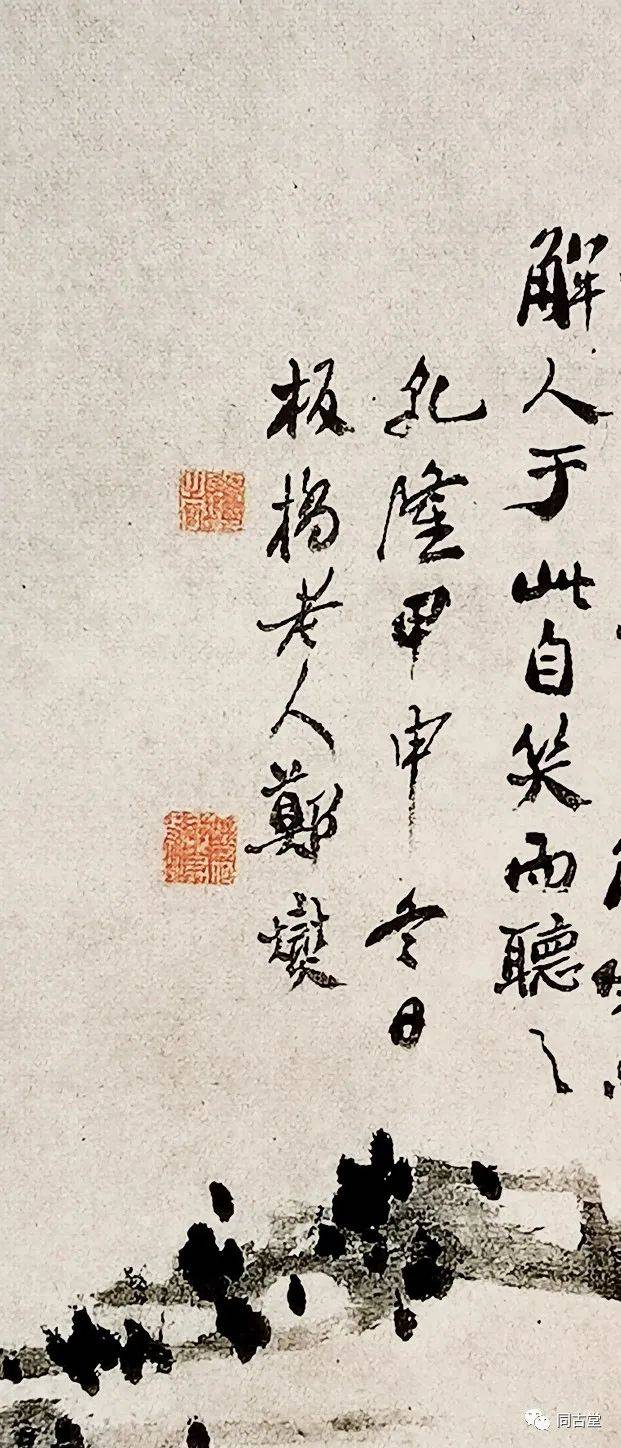 解人于此自笑而聽之
乾隆甲申冬日
板橋老人鄭燮
同古堂